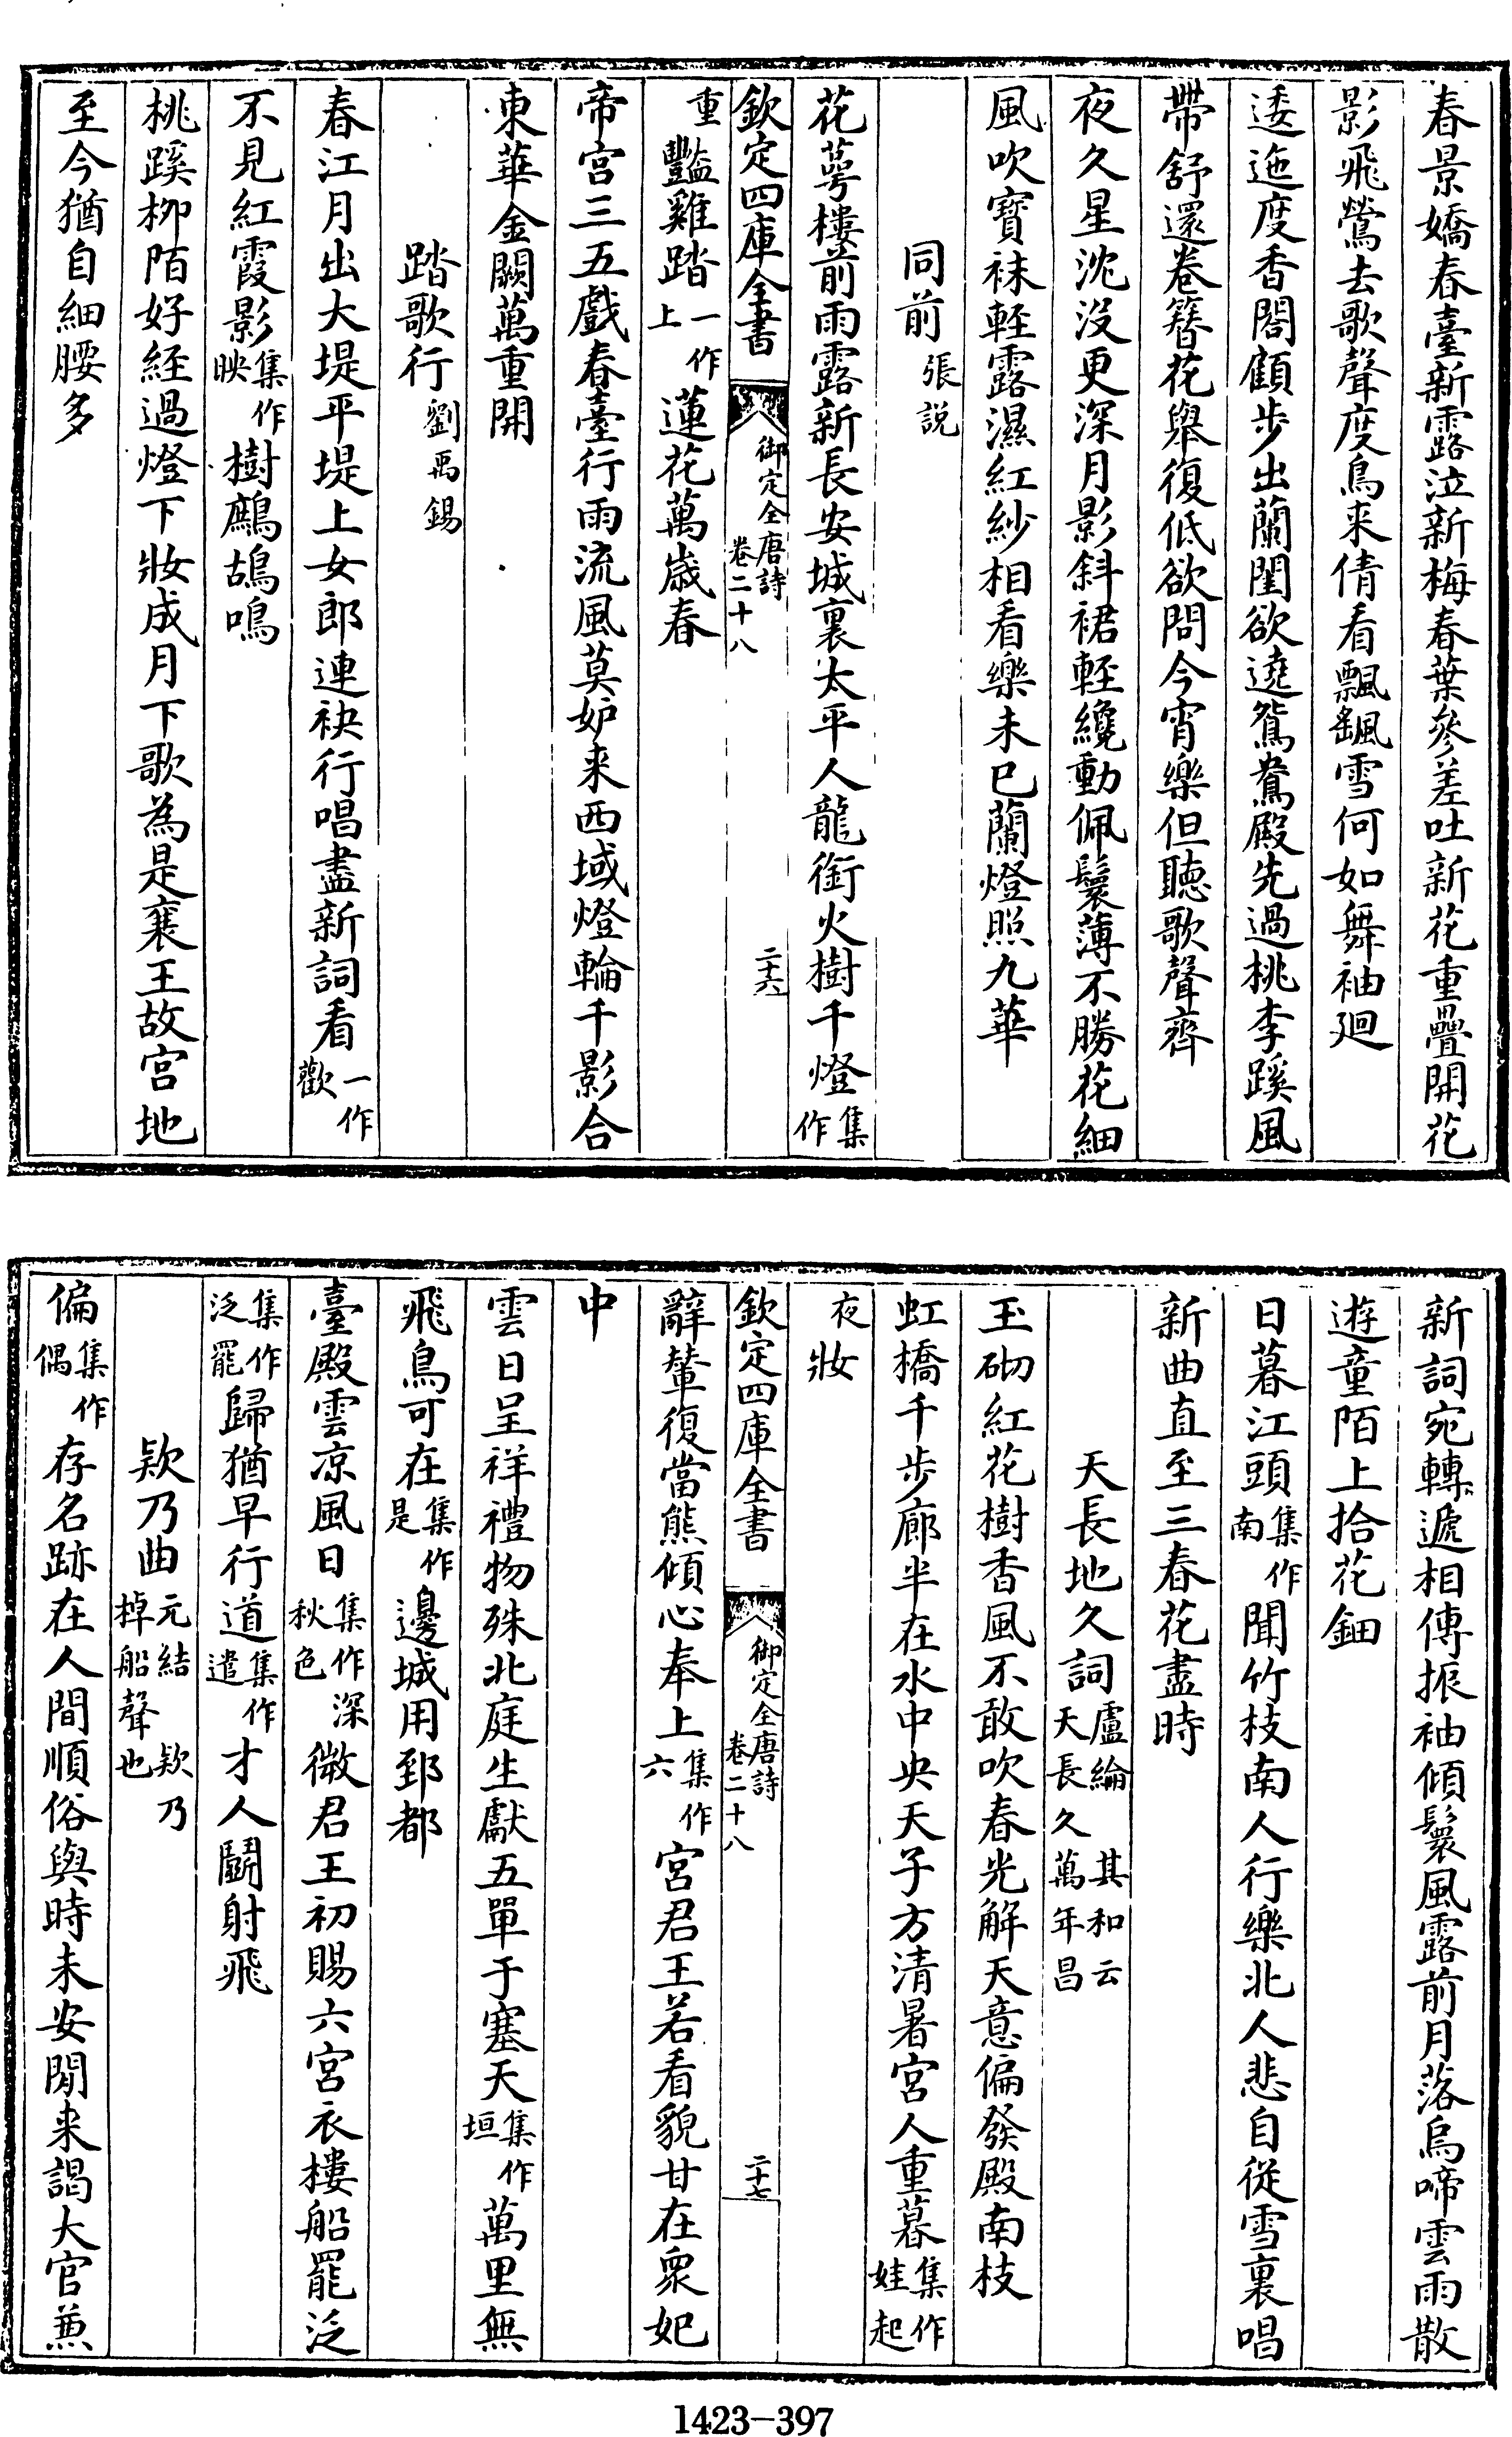 春景嬌春臺新露泣新梅春葉參差吐新花重疊開花
影飛鶯去歌聲度鳥来倩看飄颻雪何如舞袖廻
逶迤度香閣顧步出蘭閨欲遶鴛鴦殿先過桃李蹊風
帶舒還卷簪花舉復低欲問今宵樂但聽歌聲齊
夜久星沈没更深月影斜裙輕纔動佩鬟薄不勝花細
風吹寳袜輕露濕紅紗相看樂未已蘭燈照九華
同前張説
花萼樓前雨露新長安城裏太平人龍銜火樹千燈集作
欽定四庫全書 御定全唐詩卷二十八 二十六
重豔雞踏一作上蓮花萬歲春
帝宮三五戲春臺行雨流風莫妒来西域燈輪千影合
東華金闕萬重開
踏歌行劉禹錫
春江月出大堤平堤上女郎連袂行唱盡新詞看一作歡
不見紅霞影集作映樹鷓鴣鳴
桃蹊柳陌好経過燈下妝成月下歌為是襄王故宮地
至今猶自細腰多
新詞宛轉遞相傳振袖傾鬟風露前月落烏啼雲雨散
遊童陌上拾花鈿
日暮江頭集作南聞竹枝南人行樂北人悲自從雪裏唱
新曲直至三春花盡時
天長地久詞盧綸 其和云天長久萬年昌
玉砌紅花樹香風不敢吹春光解天意偏發殿南枝
虹橋千步廊半在水中央天子方清暑宮人重暮集作娃起
夜妝
欽定四庫全書 御定全唐詩卷二十八 二十七
辭輦復當熊傾心奉上集作六宮君王若看貌甘在衆妃
中
雲日呈祥禮物殊北庭生獻五單于塞天集作垣萬里無
飛鳥可在集作是邊城用郅都
臺殿雲凉風日集作深秋色微君王初賜六宮衣樓船罷泛
集作泛罷歸猶早行道集作遣才人鬬射飛
欵乃曲元結 欵乃棹船聲也
偏集作偶存名跡在人間順俗與時未安閒来謁大官兼
1423-397